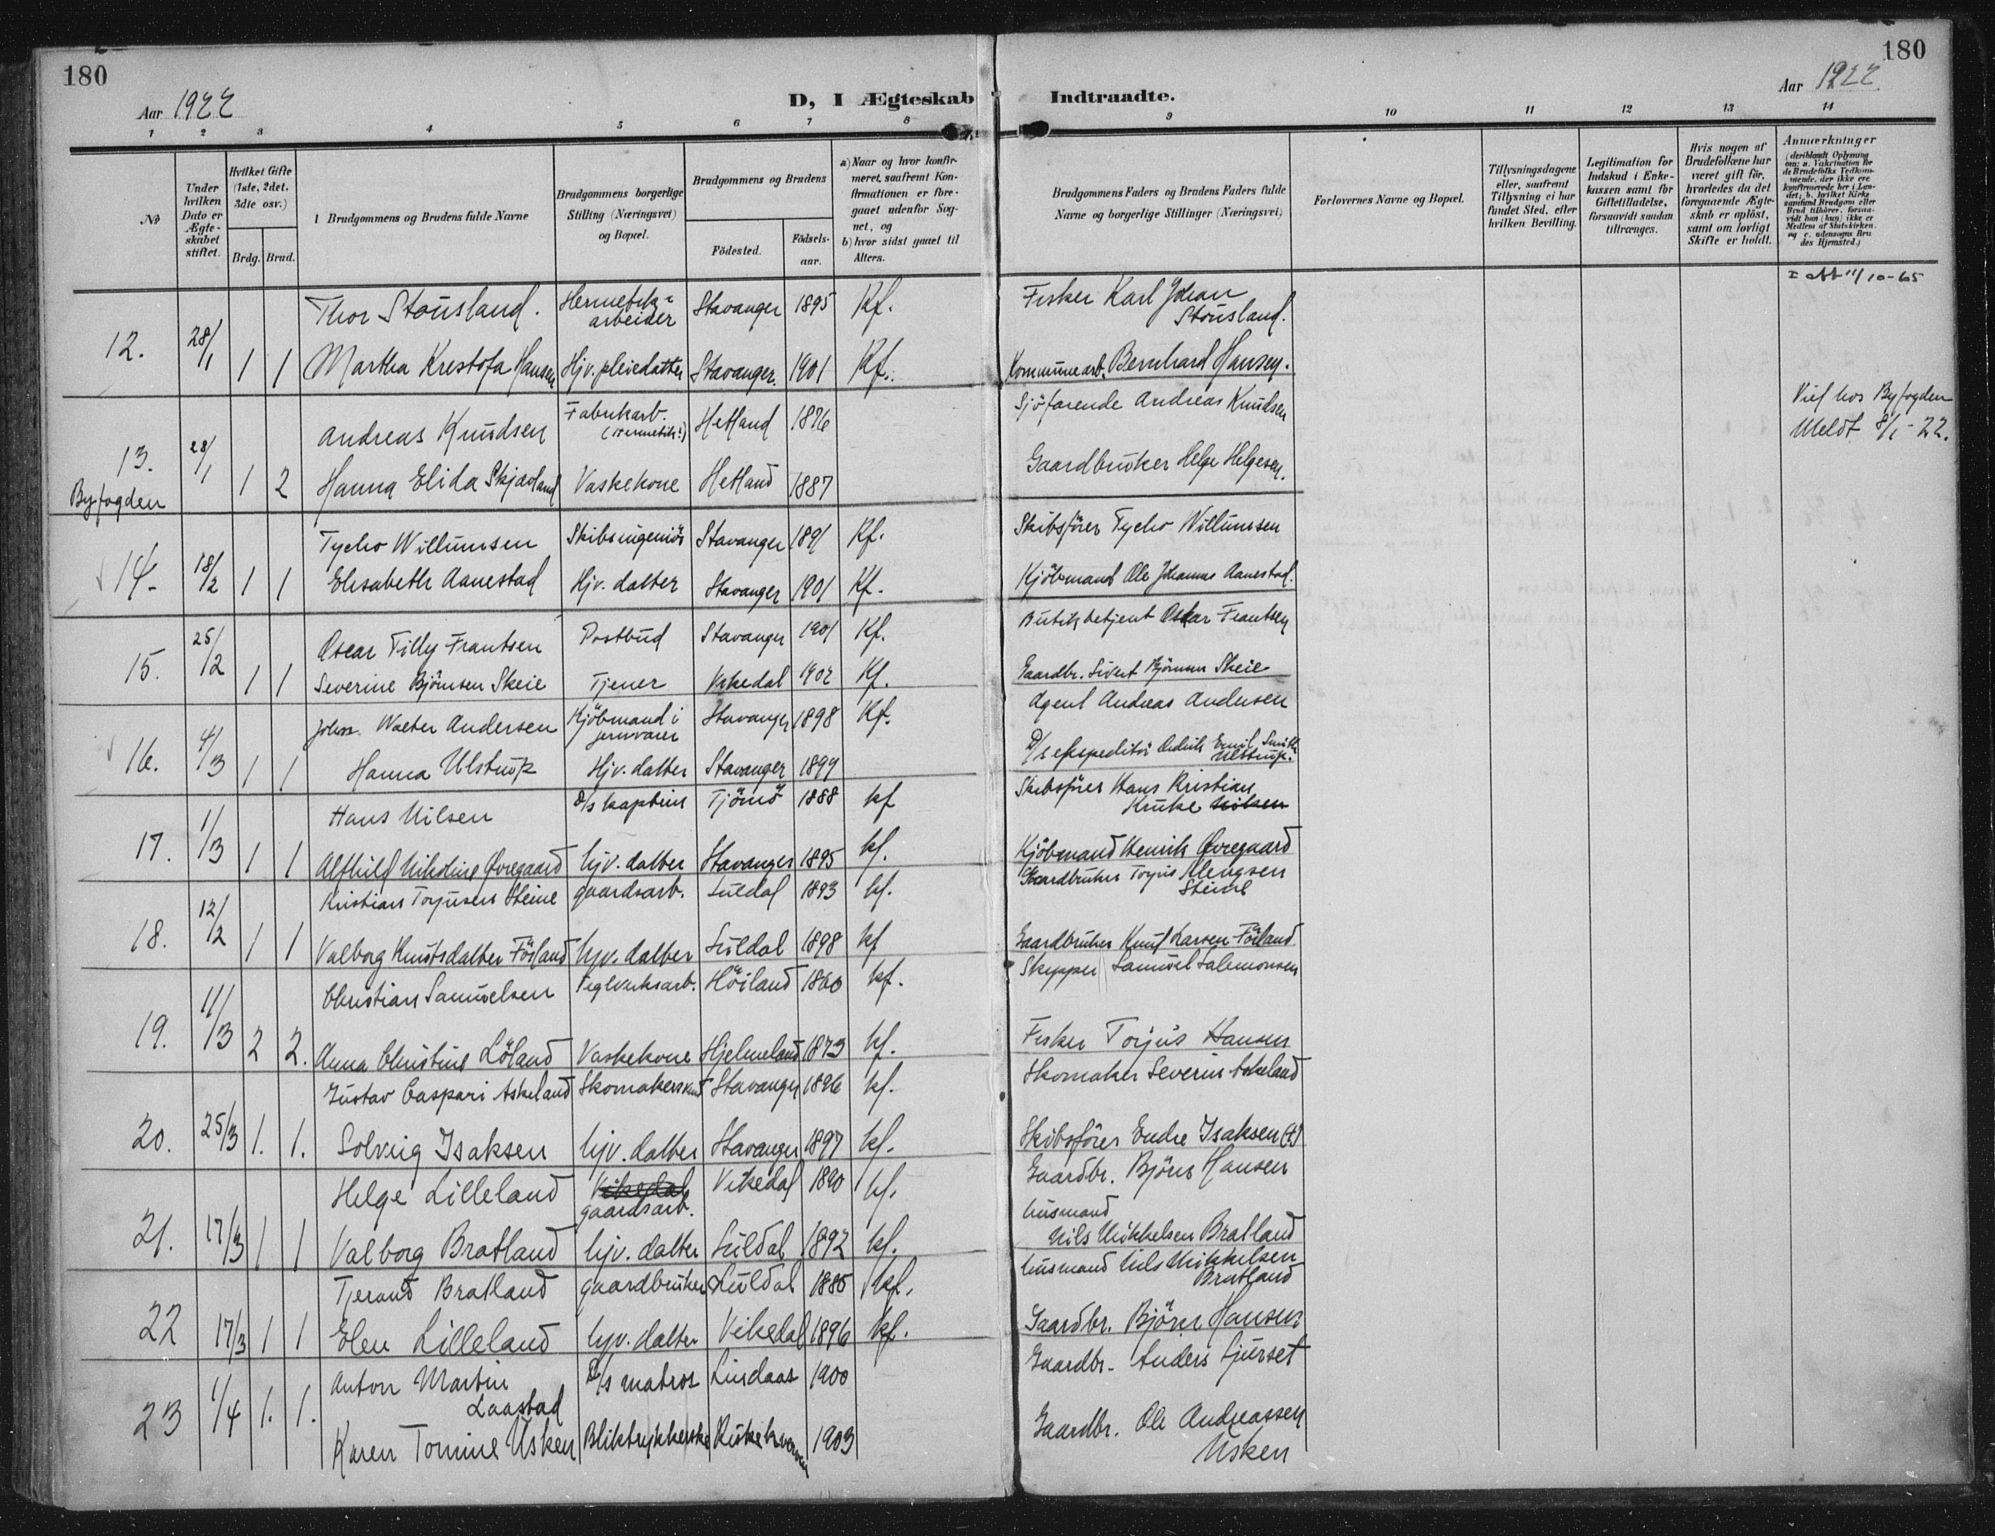 180
Aar 1922
D, I Ægteskab Indtraadte.
180
Aar 1922
1 2 3 4 5 6 7 8 9 10 11 12 13 14
No
Under hvilken Dato er Ægteskabet stiftet.
Hvilket Gifte (1ste, 2det, 3die osv.)
Brdg. Brud.
Brudgommens og Brudens fulde Navne
Brudgommens borgerlige Stilling (Næringsvei) og Bopæl.
Brudgommens og Brudens
Fødested.
Fødselsaar.
a) Naar og hvor konfirmeret, saafremt Konfirmationen er foregaaet udenfor Sognet, og
b) hvor sidst gaaet til Alters.
Brudgommens Faders og Brudens Faders fulde Navne og borgerlige Stillinger (Næringsvei)
Forlovernes Navne og Bopæl.
Tillysningsdagene eller, saafremt Tillysning ei har fundet Sted, efter hvilken Bevilling.
Legitimation for Indskud i Enkekassen samt for Giftetilladelse, forsaavidt saadan tiltrænges.
Hvis nogen af Brudefolkene har været gift før, hvorledes da det foregaaende Ægteskab er opløst, samt om lovligt Skifte er holdt.
Anmærkninger
12. 28/1 1 1
Thor Stousland. Hermetikarbeider Stavanger 1895 Kf. Fisker Karl Johan Stousland.
11/10-65
Martha Krestofa Hansen Hjv. pleiedatter Stavanger 1901 Kf. Kommunearb. Bernhard Hansen.
13. Byfogden 28/1 1 2
Andreas Knudsen Fabrikarb. Hetland 1876 Sjøfarende Andreas Knudsen
Viet hos Byfogden
Meldt 8/1-22.
Hanna Elida Skjæveland Vaskekone Hetland 1887 Gaardbruker Helge Helgesen.
14. 18/2 1 1
Tycho Willumsen Skibsingeniør Stavanger 1891 Kf. Skibsfører Tycho Willumsen
Elisabeth Aanestad Hjv. datter Stavanger 1901 Kf. Kjöbmand Ole Johannes Aanestad.
15. 25/2 1 1
Oscar Tilly Frantsen Postbud Stavanger 1901 Kf. Butikbetjent Oskar Frantsen
Severine Björnsen Skeie Tjener Vikedal 1902 Kf. Gaardbr. Sivert Björnsen Skeie
16. 4/3 1 1
Johs. Walter Andersen Kjöbmand i jernvarer Stavanger 1898 Kf. Agent Andreas Andersen
Hanna Ulstrup Hjv. datter Stavanger 1899 D/s ekspeditör Emil Smith Ulstrup.
17. 1/3 1 1
Hans Nilsen D/s kaptein Tjömö 1888 kf Skibsfører Hans Kristian Kruke Nilsen
Alfhild Nikoline Øvregaard hjv. datter Stavanger 1895 kf. Kjöbmand Henrik Øvregaard
18. 12/2 1 1
Kristian Torjusen Steine gaardsarb. Suldal 1893 kf. Gaardbruker Torjus Steine
Valborg Knutsdatter Föiland hjv. datter Suldal 1898 kf Gaardbruker Knut Larsen Föiland
19. 11/3 2 2.
Christian Samuelsen Teglverksarb. Höiland 1860 kf. Skipper Samuel Salemonsen
Anna Christine Löland Vaskekone Hjelmeland 1873 kf. Fisker Torjus Hansen
20. 25/3 1. 1.
Gustav Caspari Askeland Skomakersvend Stavanger 1896 kf. Skomaker Severin Askeland
Solveig Isaksen hjv. datter Stavanger 1897 kf. Skibsfører Endre Isaksen (+)
21. 17/3 1 1
Helge Lilleland Vikedal gaardsarb. Vikedal 1890 kf. Gaardbr. Björn Hansen
Valborg Bratland hjv. datter Suldal 1892 kf. husmand Nils Mikkelsen Bratland
22 17/3 1 1
Tjerand Bratland gaardbruker Suldal 1885 kf. husmand Nils Mikkelsen Bratland
Elen Lilleland hjv. datter Vikedal 1896 kf. Gaardbr. Björn Hansen
23 1/4 1. 1.
Anton Martin Laastad D/s matros Lindaas 1900 Gaardbr. Anders
Karen Tomine Usken Bliktrykkerske 1903 Gaardbr. Ole Andreassen Usken